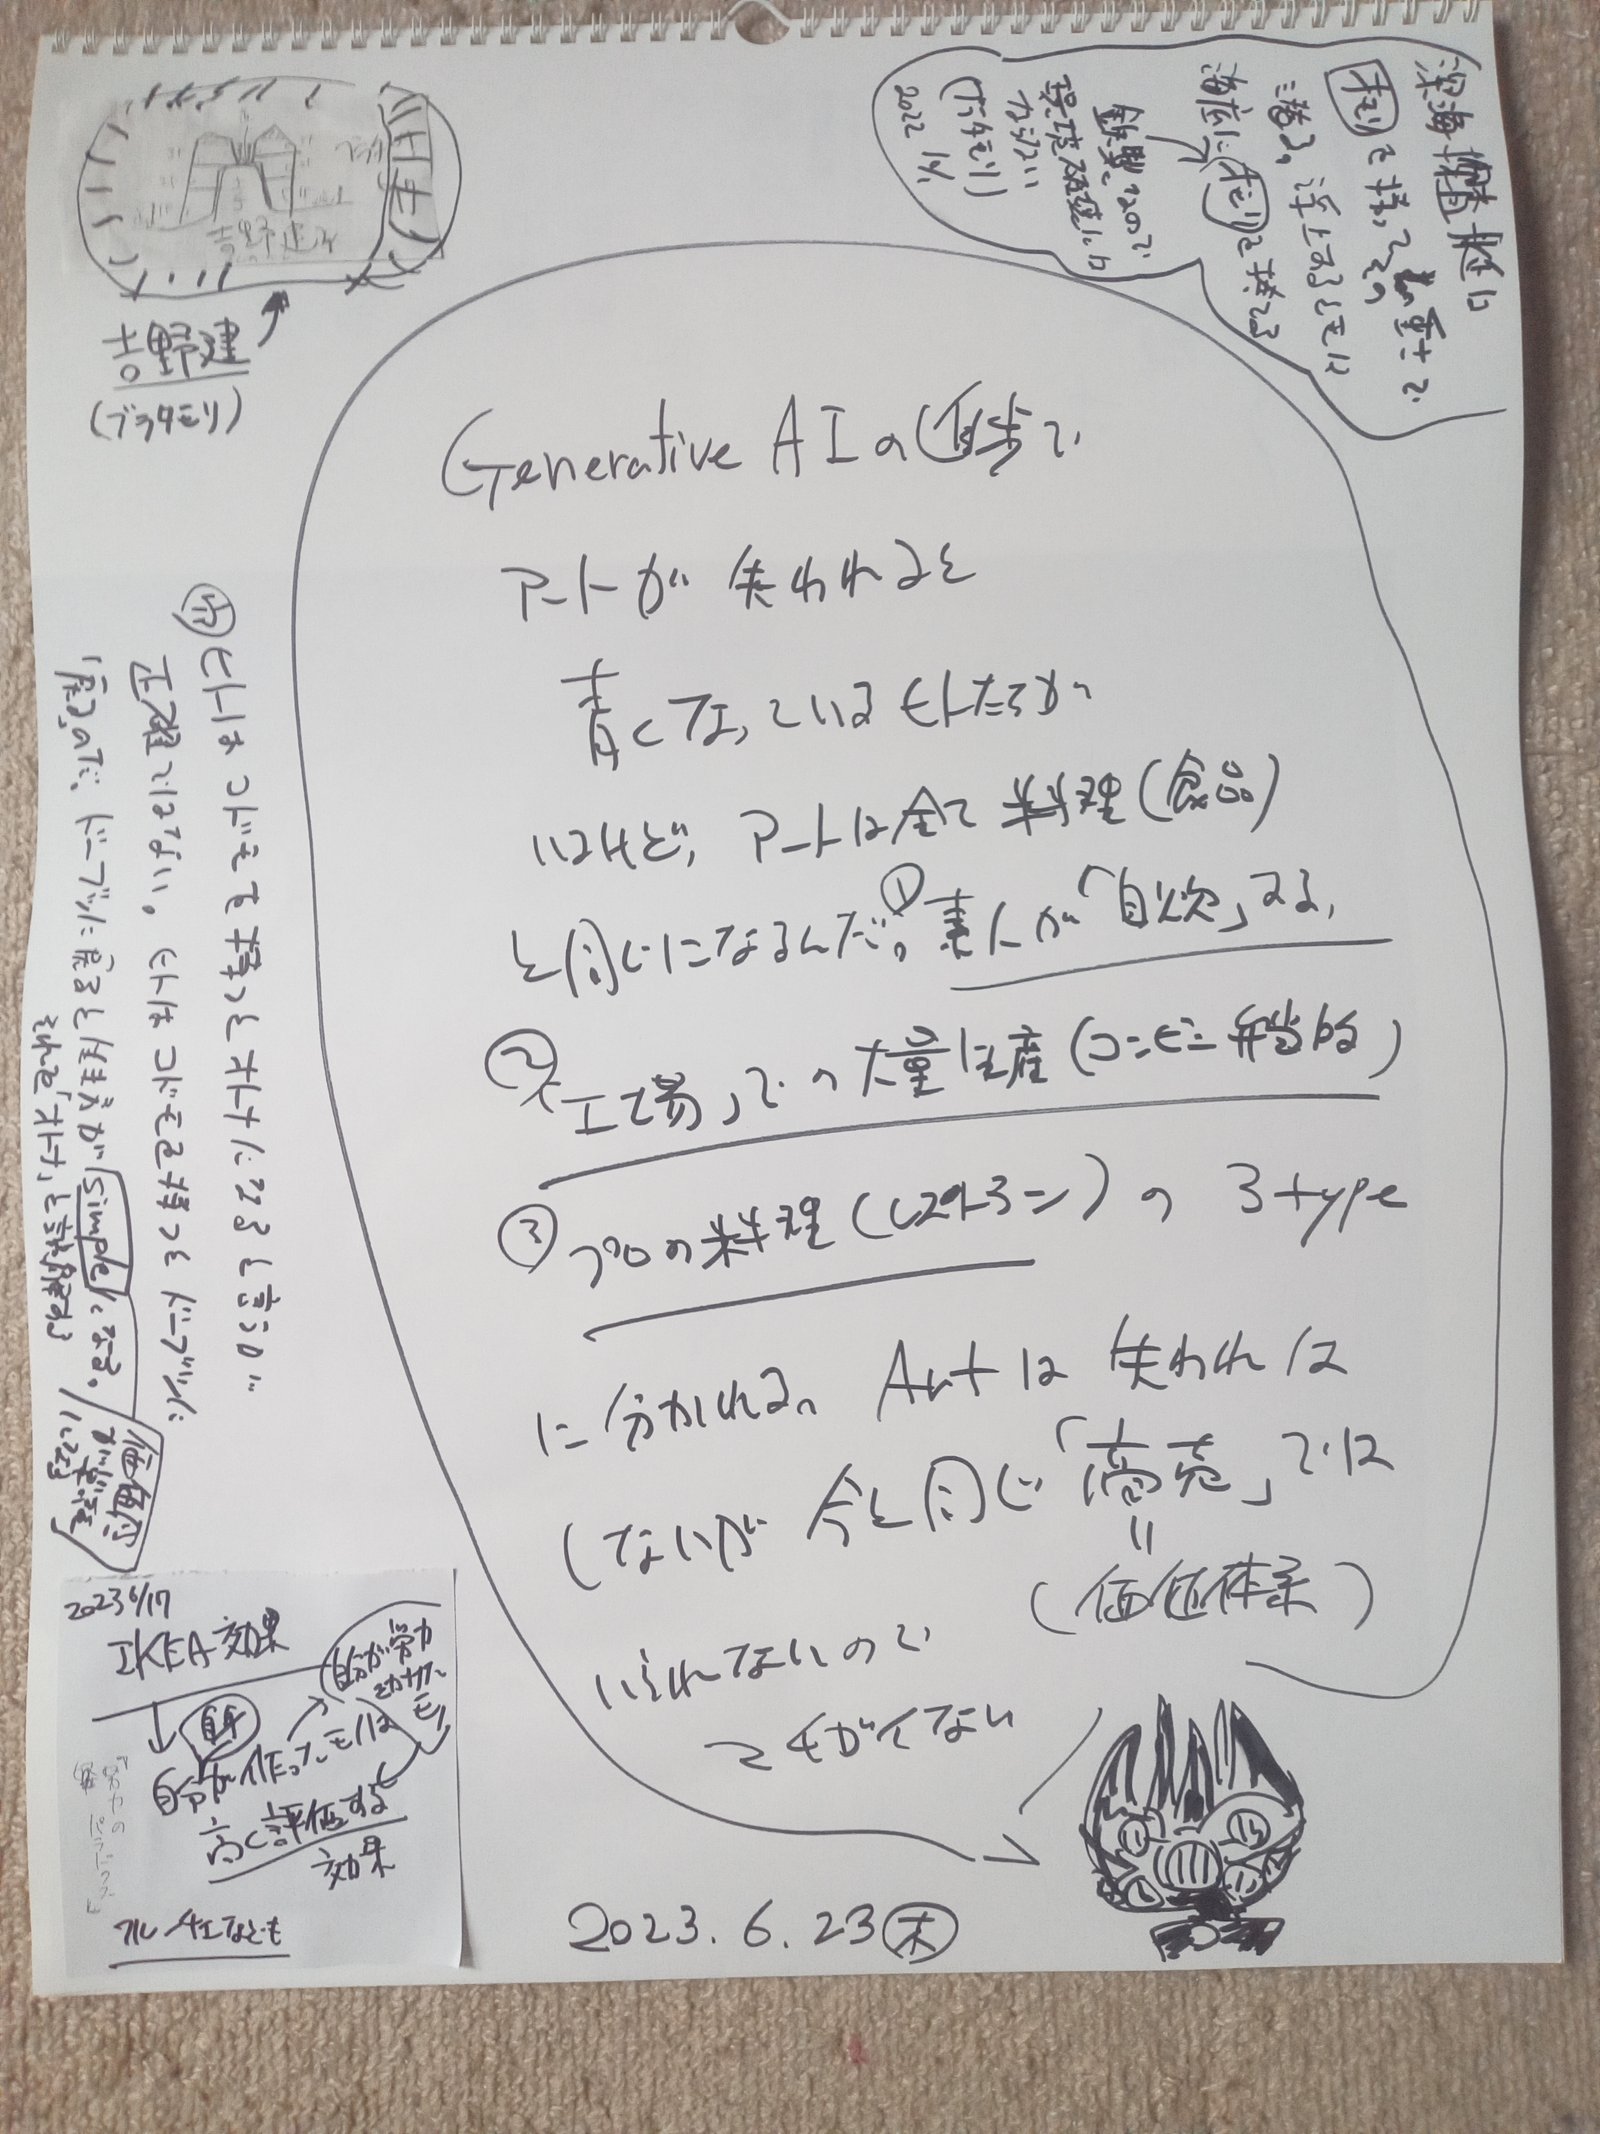 深海探査艇は
オモリを積んでその重さで
潜る。浮上するときは
海底にオモリを捨てる
鉄製なので
環境破壊には
ならない
(ブラタモリ)
2022 1/1
吉野建
(ブラタモリ)
Generative AIの進歩で
アートが失われると
青くなっているヒトたちが
いるけど、アートは全て料理(食品)
と同じになるんだ。①素人が「自炊」する、
②「工場」での大量生産(コンビニ弁当的)
③プロの料理(レストラン)の3type
に分かれる。Artは失われは
しないが今と同じ「商売」では
=
(価値体系)
いられないので
2023.6.23(木)
ヒトはコドモを捨うとオトナになると言うが
正確ではない。ヒトはコドモを持つとドーブツに
戻るのだ。ドーブツに戻ると生活がSimpleになる。
それを「オトナ」と誤解する
価値が
2023 6/17
IKEA効果
自分が労力
自分が作ったモノは
高く評価する
効果